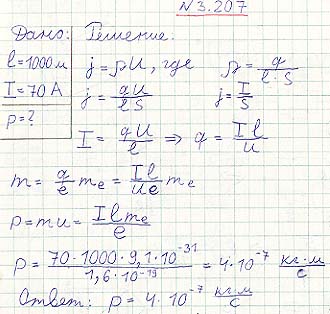 №3.207
Дано: Решение:
l=1000м j=ρU, где ρ=q/(l·S)
I=70A j=qU/(lS) j=I/S
p=?
I=qU/l ⇒ q=Il/U
m=q/e mₑ=Il/(Ue) mₑ
p=mu=Ilmₑ/e
p=70·1000·9,1·10⁻³¹/(1,6·10⁻¹⁹)=4·10⁻⁷ кг·м/с
Ответ: p=4·10⁻⁷ кг·м/с